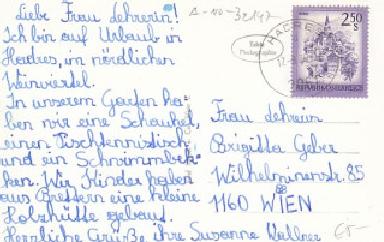 Liebe Frau Lehrerin!
Ich bin auf Urlaub in
Hadres, im nördlichen
Weinviertel.
In unserem Garten ha-
ben wir eine Schaukel,
einen Tischtennistisch
und ein Schwimmbek-
ken. Wir Kinder haben
aus Brettern eine kleine
Holzhütte gebaut.
Herzliche Grüße ihre Susanne Wallner
Frau Lehrerin
Brigitta Geber
Wilhelminenstr. 85
1160 WIEN
2.50
S
REPUBLIK ÖSTERREICH